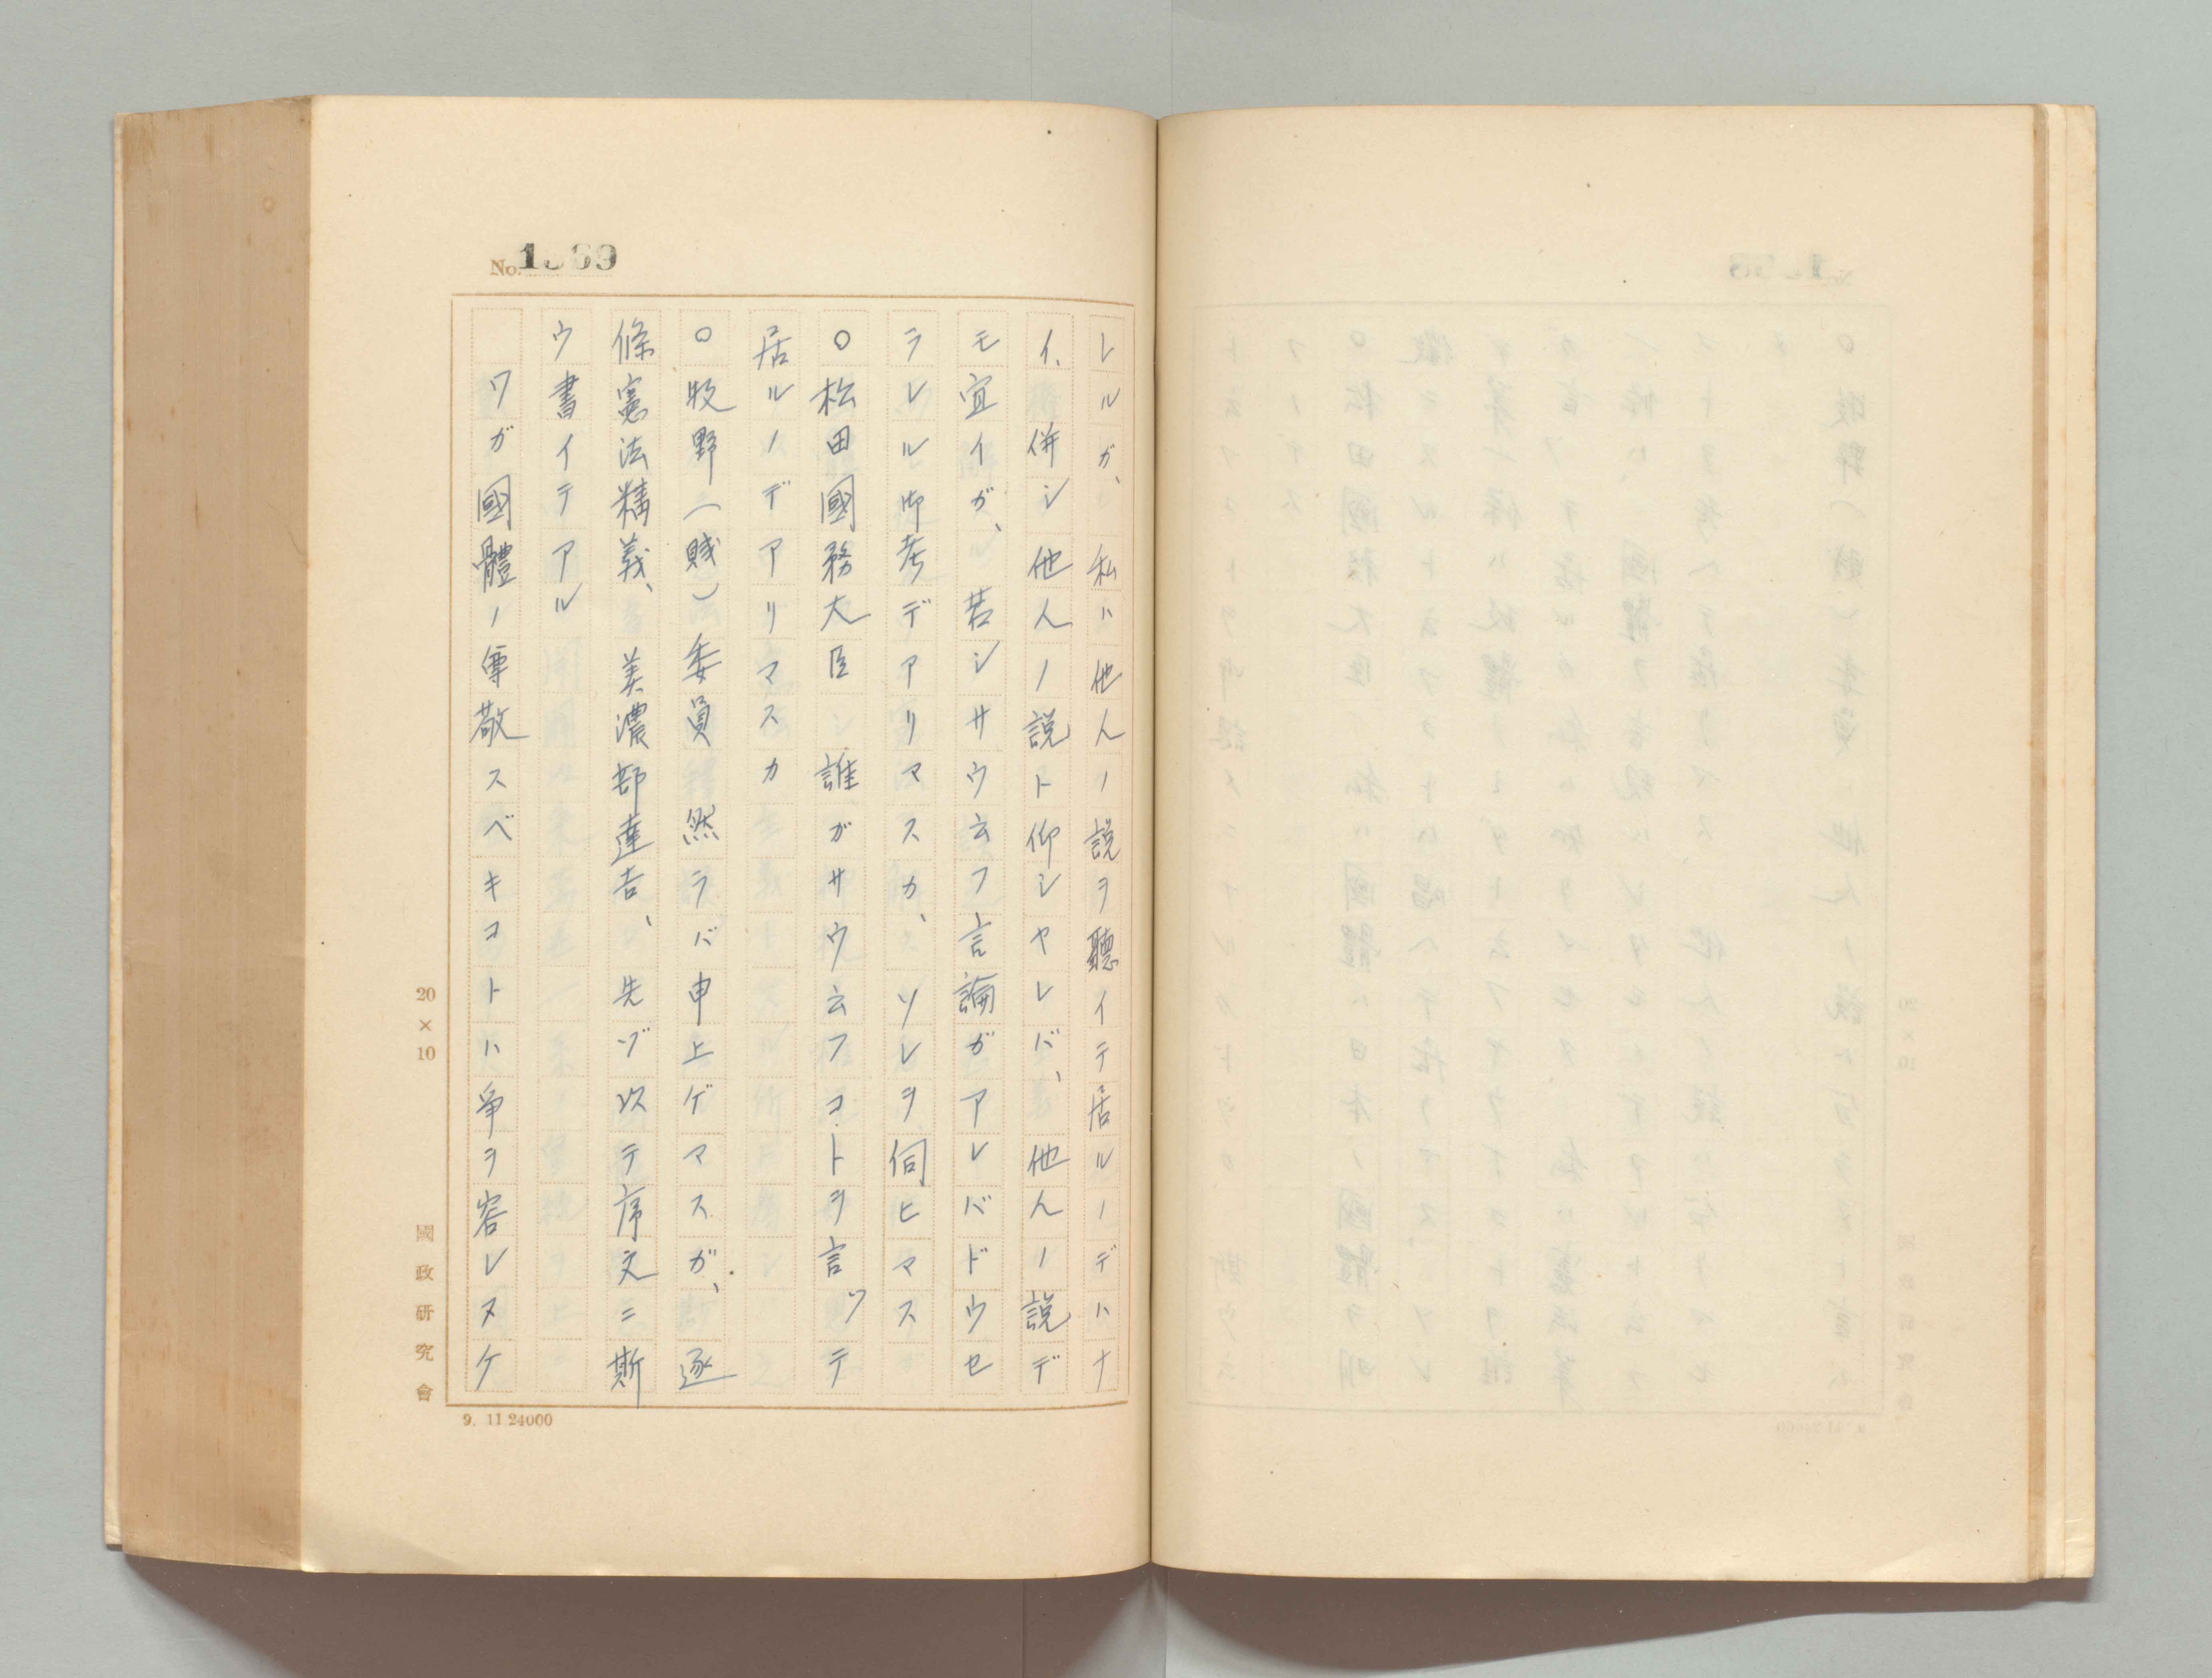 No. 1369
レルガ、私ハ他人ノ説ヲ聽イテ居ルノデハナ
イ、併シ他人ノ説ト仰シヤレバ、他人ノ説デ
モ宜イガ、若シサウ云フ言論ガアレバドウセ
ラレル御考デアリマスカ、ソレヲ伺ヒマス
○松田國務大臣　誰ガサウ云フコトヲ言ツテ
居ルノデアリマスカ
○牧野(賤)委員　然ラバ申上ゲマスガ、逐
條憲法精義、美濃部達吉、先ヅ以テ序文ニ斯
ウ書イテアル
ワガ國體ノ尊敬スベキコトハ爭ヲ容レヌケ
20×10
國政研究會
9. 11 24000